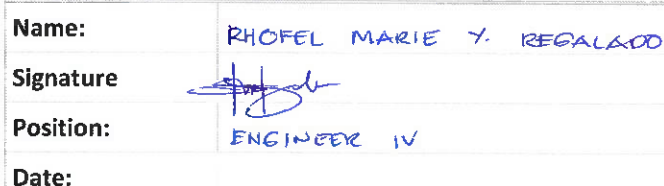 Name: RHOFEL MARIE Y. REGALADO
Signature
Position: ENGINEER IV
Date: